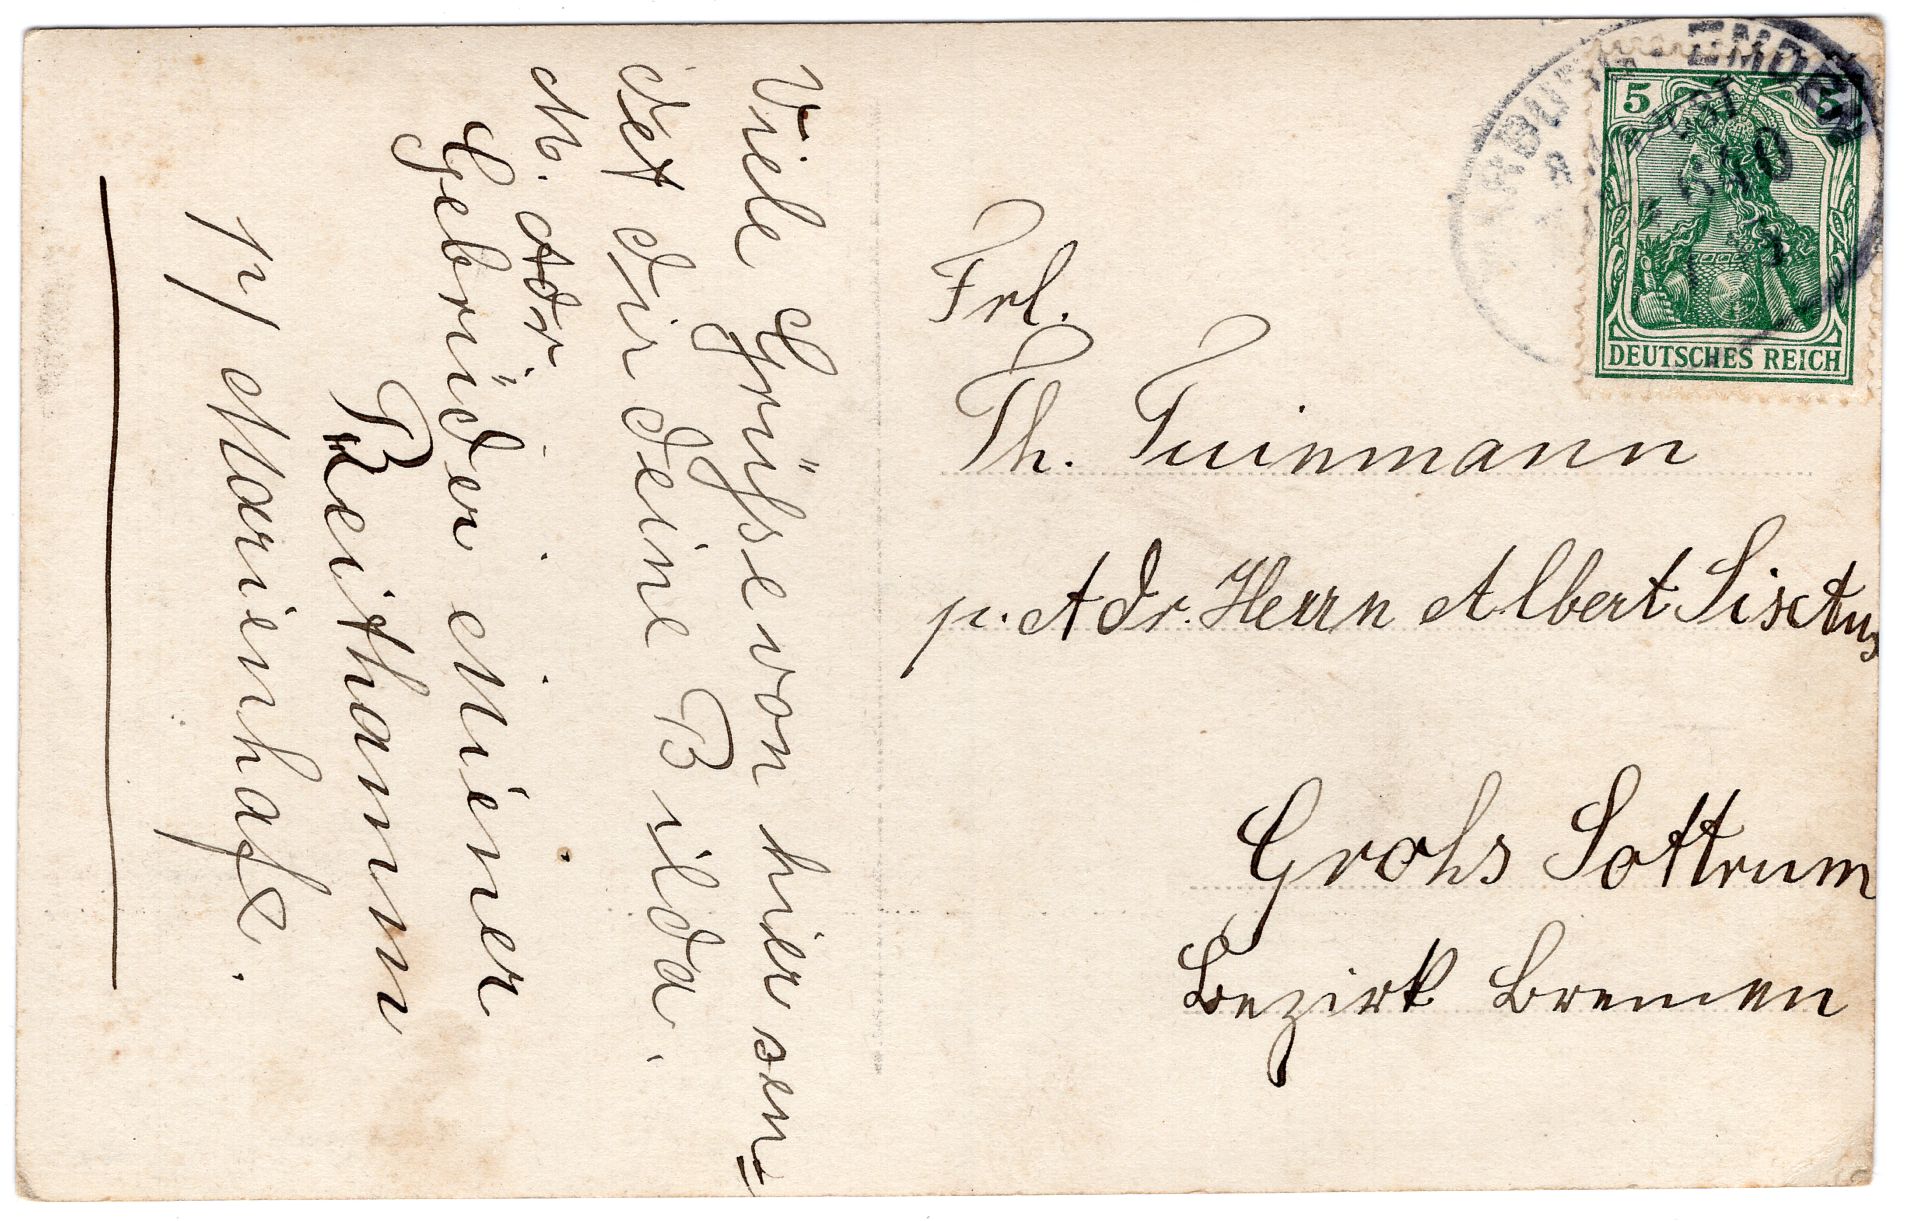 Viele Grühse von hier sen=
det dir deine Bilda.
M. Adr
Gebrüder Miner
Reithamm
p/ Marienhafe.
5 5
DEUTSCHES REICH
EMDEN
Frl.
Th. Tuinmann
p. Adr. Herrn Albert Sixtus
Grohs Sottrum
Bezirk Bremen